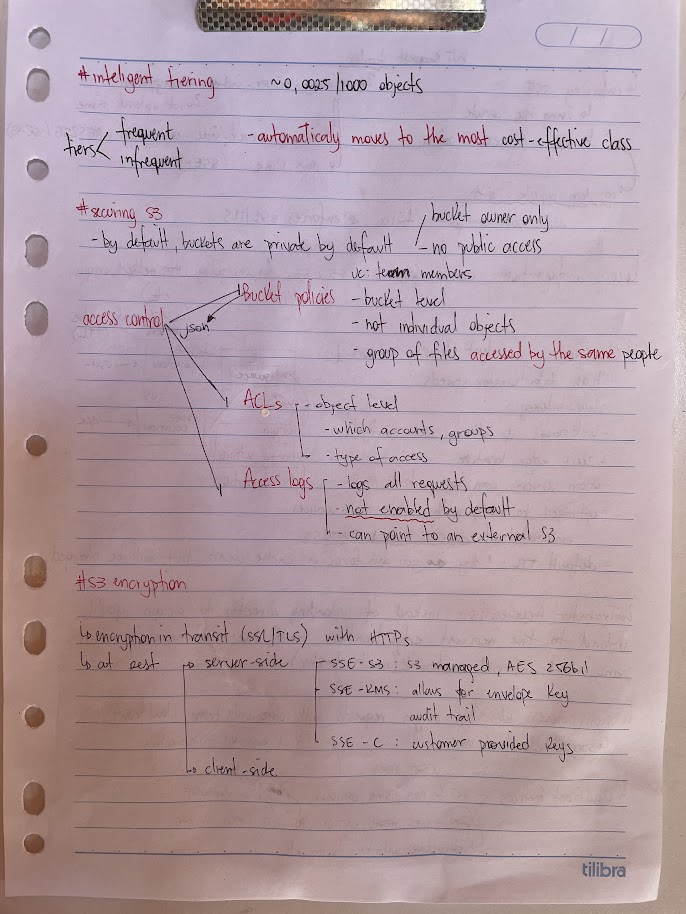 / /
#inteligent tiering ~0,0025/1000 objects
tiers frequent - automaticaly moves to the most cost-effective class
infrequent
#securing S3
bucket owner only
- by default, buckets are private by default - no public access
uc: team members
Bucket policies - bucket level
access control json - not individual objects
- group of files accessed by the same people
ACLs - object level
- which accounts, groups
- type of access
Access logs - logs all requests
- not enabled by default
- can point to an external S3
#S3 encryption
↳ encryption in transit (SSL/TLS) with HTTPs
↳ at rest server-side SSE-S3: S3 managed, AES 256bit
SSE-KMS: allows for envelope key
audit trail
SSE-C: customer provided keys
client-side
tilibra